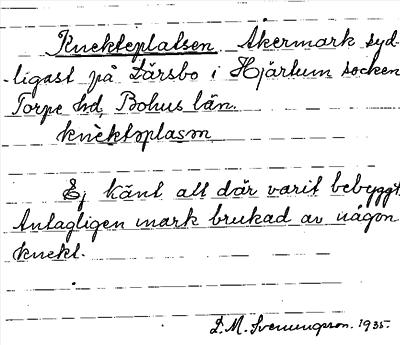 Knekteplatsen. Åkermark syd-
ligast på Lärsbo i Hjärtum socken
Torpe hd, Bohus län.
knèktəplasən
Ej känt att där varit bebyggt.
Antagligen mark brukad av någon
knekt.
L. M. Svenungsson. 1935.